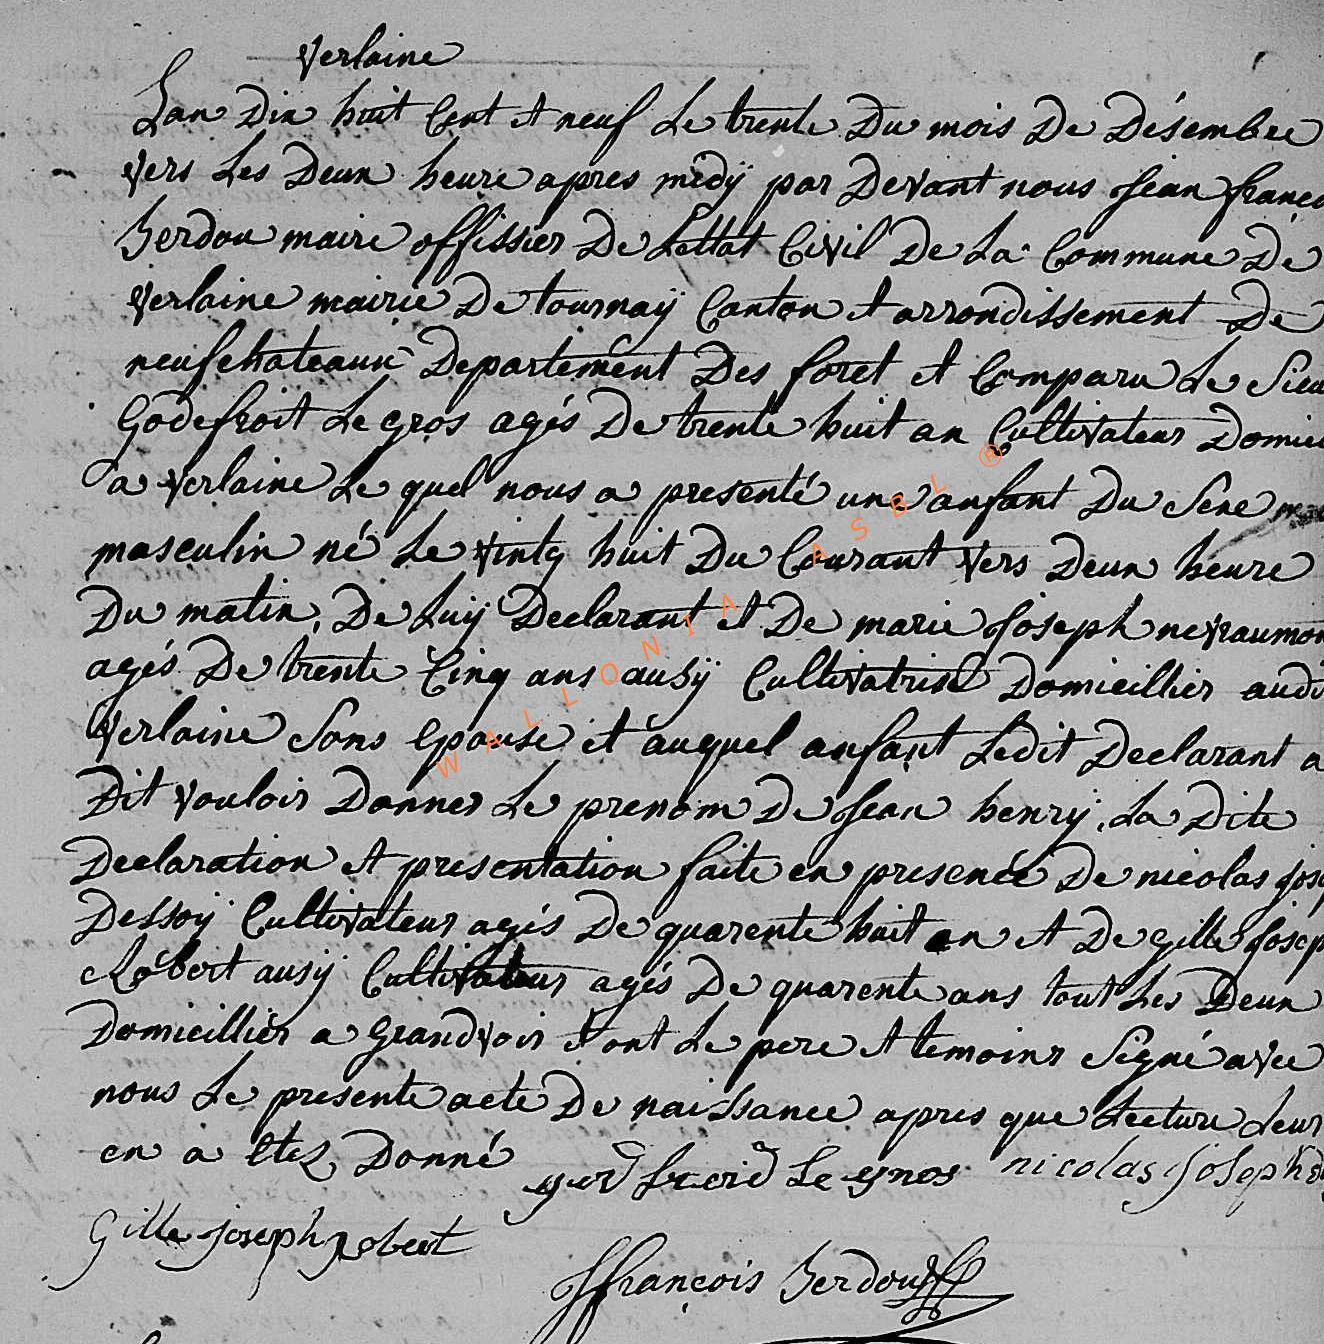 Verlaine
Lan Dix huit Cent et neuf Le trente Du mois De Désembre
vers Les Deux heure apres midÿ par Devant nous Jean françoi
Berdou maire offissier De Lettat Civil De La Commune De
Verlaine mairie De tournaÿ Canton et arrondissement De
neufchateaux Departement Des foret et Comparu Le Sieu
Godefroit Le gros agés De trente huit an Cultivateur Domici
a verlaine Le quel nous a presenté une anfant Du Sexe
masculin né Le vintq huit Du Courant vers Deux heure
Du matin, De Luÿ Declarant et De marie Joseph nevraumon
agés De trente Cinq ans ausÿ Cultivatrise Domicillier audi
Verlaine Sons Epouse et auquel anfant Ledit Declarant a
Dit vouloir Donner Le prenom De Jean henrÿ, La Dite
Declaration et presentation faite en presence De nicolas Jos
Dessoÿ Cultivateur agés De quarente huit an et De gille Josep
Robert ausÿ Cultivateur agés De quarente ans tout Les Deux
Domicillier a Grandvoir et ont Le pere et temoins Signé avec
nous Le presente acte De naissance apres que Lecture Leur
en a Etez Donné
Le gros nicolas Joseph
Gille joseph robert
Jfrançois Berdou
WALLONIA ASBL ®